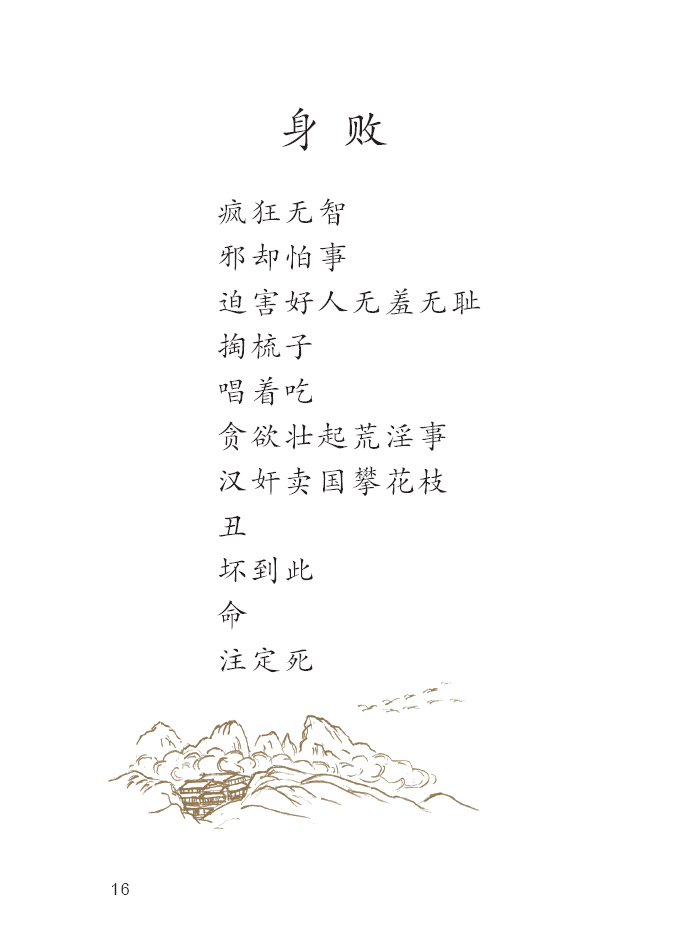 身败
疯狂无智
邪却怕事
迫害好人无羞无耻
掏梳子
唱着吃
贪欲壮起荒淫事
汉奸卖国攀花枝
丑
坏到此
命
注定死
16